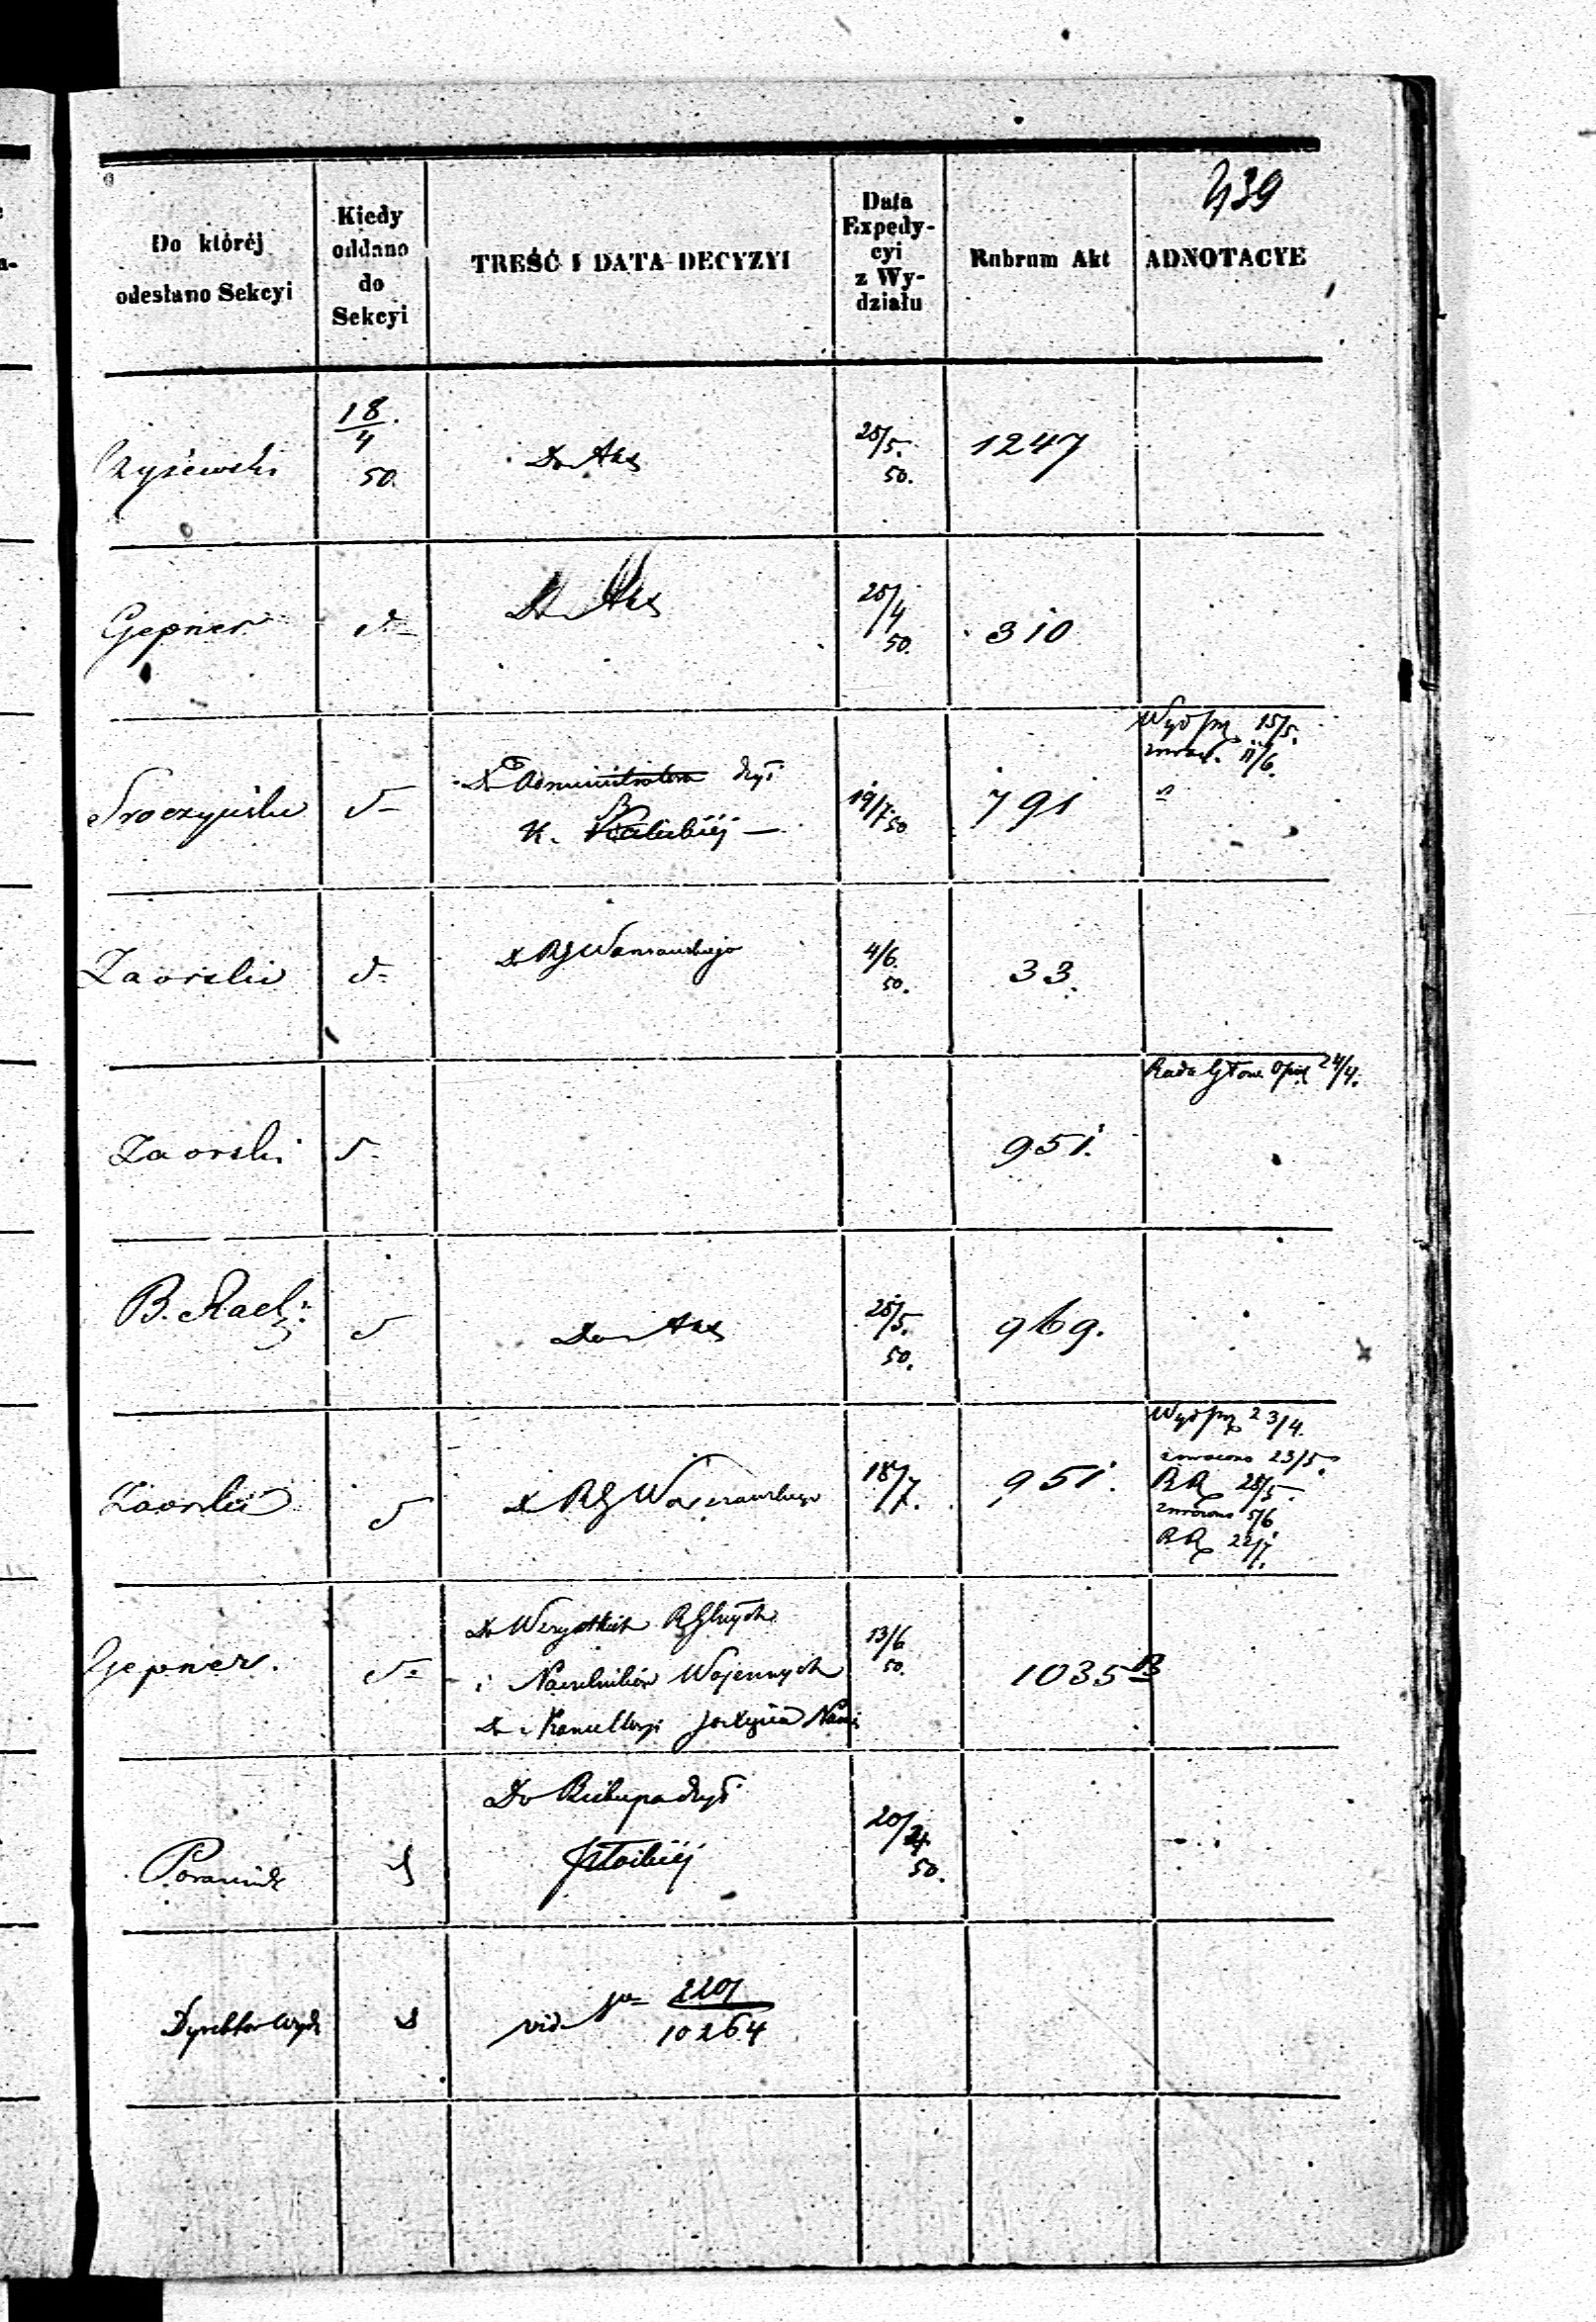 439
Do któréj odesłano Sekcyi
Kiedy oddano do Sekcyi
TREŚĆ I DATA DECYZYI
Data Expedycyi z Wydziału
Rubrum Akt
ADNOTACYE
Czyżewski 18/4 50. Do Akt 25/5. 50. 1247
Gepner d- Do Akt 25/4 50. 310
Sroczyński d- Do Administratora dyi 19/7 50 791 Wyd prz. 15/5.
K. Kaliskiéj — zwrac. 11/6.
Zaorski d- Do RG Warszawskiego 4/6. 50. 33.
Zaorski d- 951. Rada Głów. Opiek 24/4.
B. Rach: d Do Akt 25/5. 50. 969.
Zaorski d Do RG Warszawskiego 18/7. 951. Wyd prz 23/4.
zwrocono 23/5.
28/5.
zwrócono 5/6
22/7.
Gepner. d- Do Wszystkich RGlnych 13/6 50. 1035 B
i Naczelników Wojennych
Do Kancellaryi
Poraziński d Do Biskupa dyi 20/4 50.
Dyrektor Wydz d vid 10264